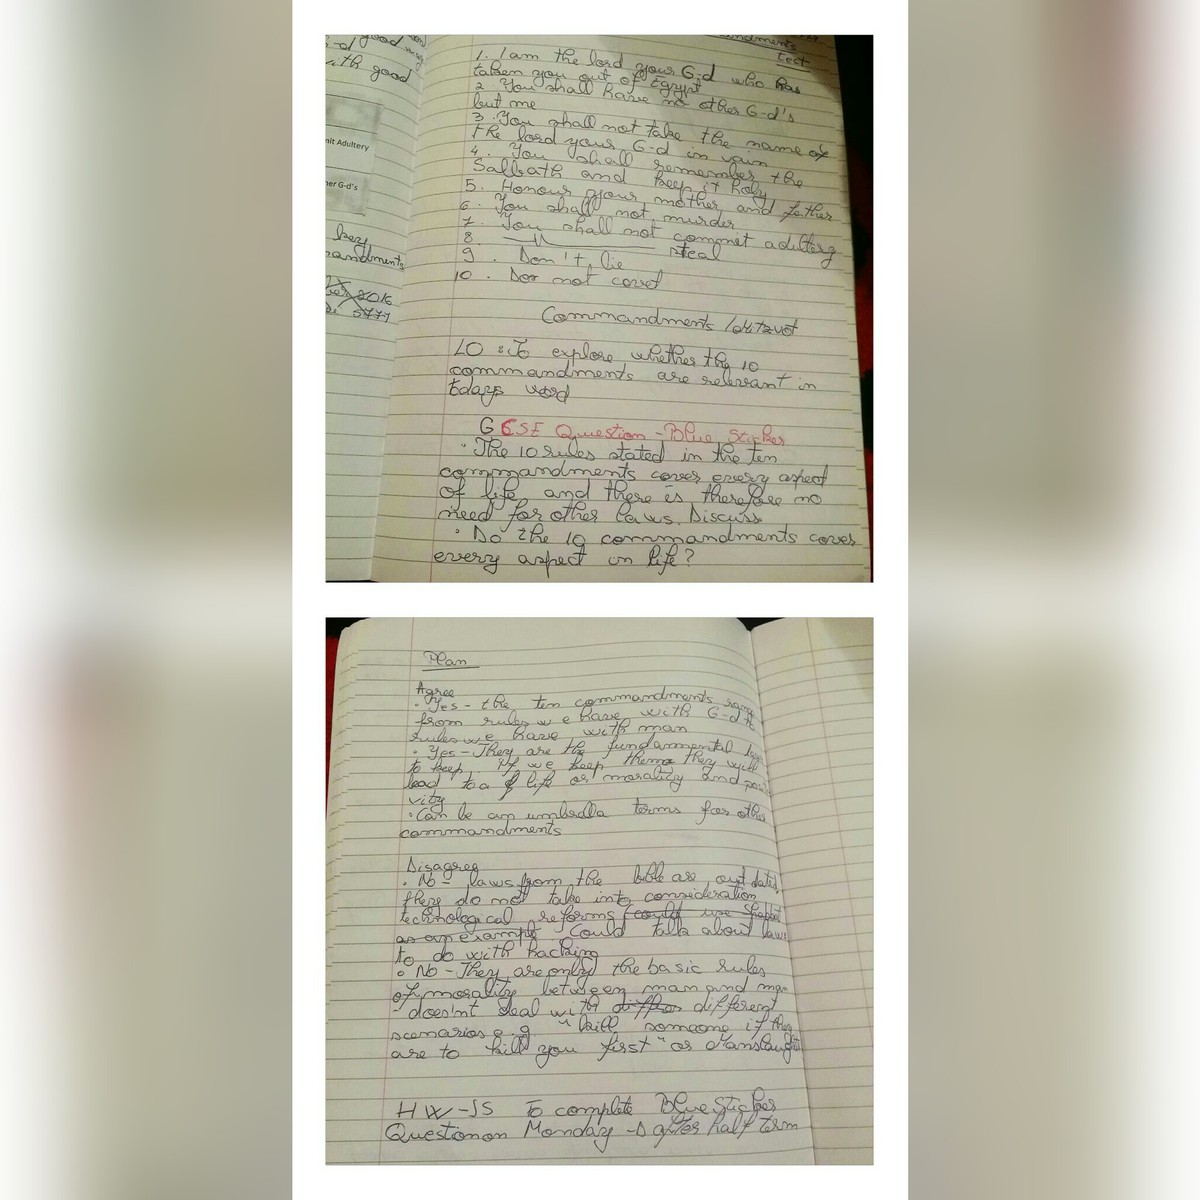 good
with good
nit Adultery
her G-d's
key
mandments
2016
5777
ndments
test
1. I am the lord your G-d who has
taken you out of Egypt
2 You shall have no other G-d's
but me
3. You shall not take the name of
the lord your G-d in vain
4. You shall remember the
Sabbath and keep it holy
5. Honour your mother and father
6. You shall not murder
7. You shall not commit adultery
8. steal
9. Don't lie
10. Do not covet
Commandments / Mitzvot
LO: To explore whether the 10
commandments are relevant in
todays word
GCSE Question - Blue Sticker
· The 10 rules stated in the ten
commandments covers every aspect
of life and there is therefore no
need for other laws. Discuss
· Do the 10 commandments cover
every aspect in life?
Plan
Agree
· Yes - the ten commandments range
from rules we have with G-d to
rules we have with man
· Yes - They are the fundammental
to keep. If we keep them they will
lead to a life of morality and
vity
· Can be an umbrella terms for other
commandments
Disagree
· No - laws from the bible are outdated,
they do not take into consideration
technological reforms (could use shabbat
as an example Could talk about laws
to do with hacking
· No - They are only the basic rules
of morality between man and man
doesn't deal with different
scenarios e.g. "kill someone if they
are to kill you first" or Manslaught
HW - JS To complete Blue Sticker
Question on Monday → after half term